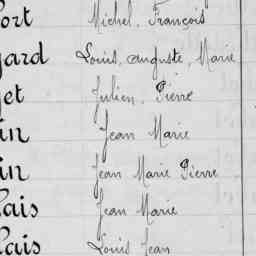 ort Michel, François
gard Louis, auguste, Marie
et Julien, Pierre
in Jean Marie
in Jean Marie Pierre
lais Jean Marie
lais Louis Jean